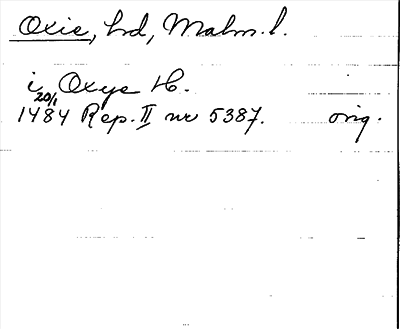 Oxie, hd, Malm.l.
i Oxye H.
20/1
1484 Rep. II nr 5387. orig.